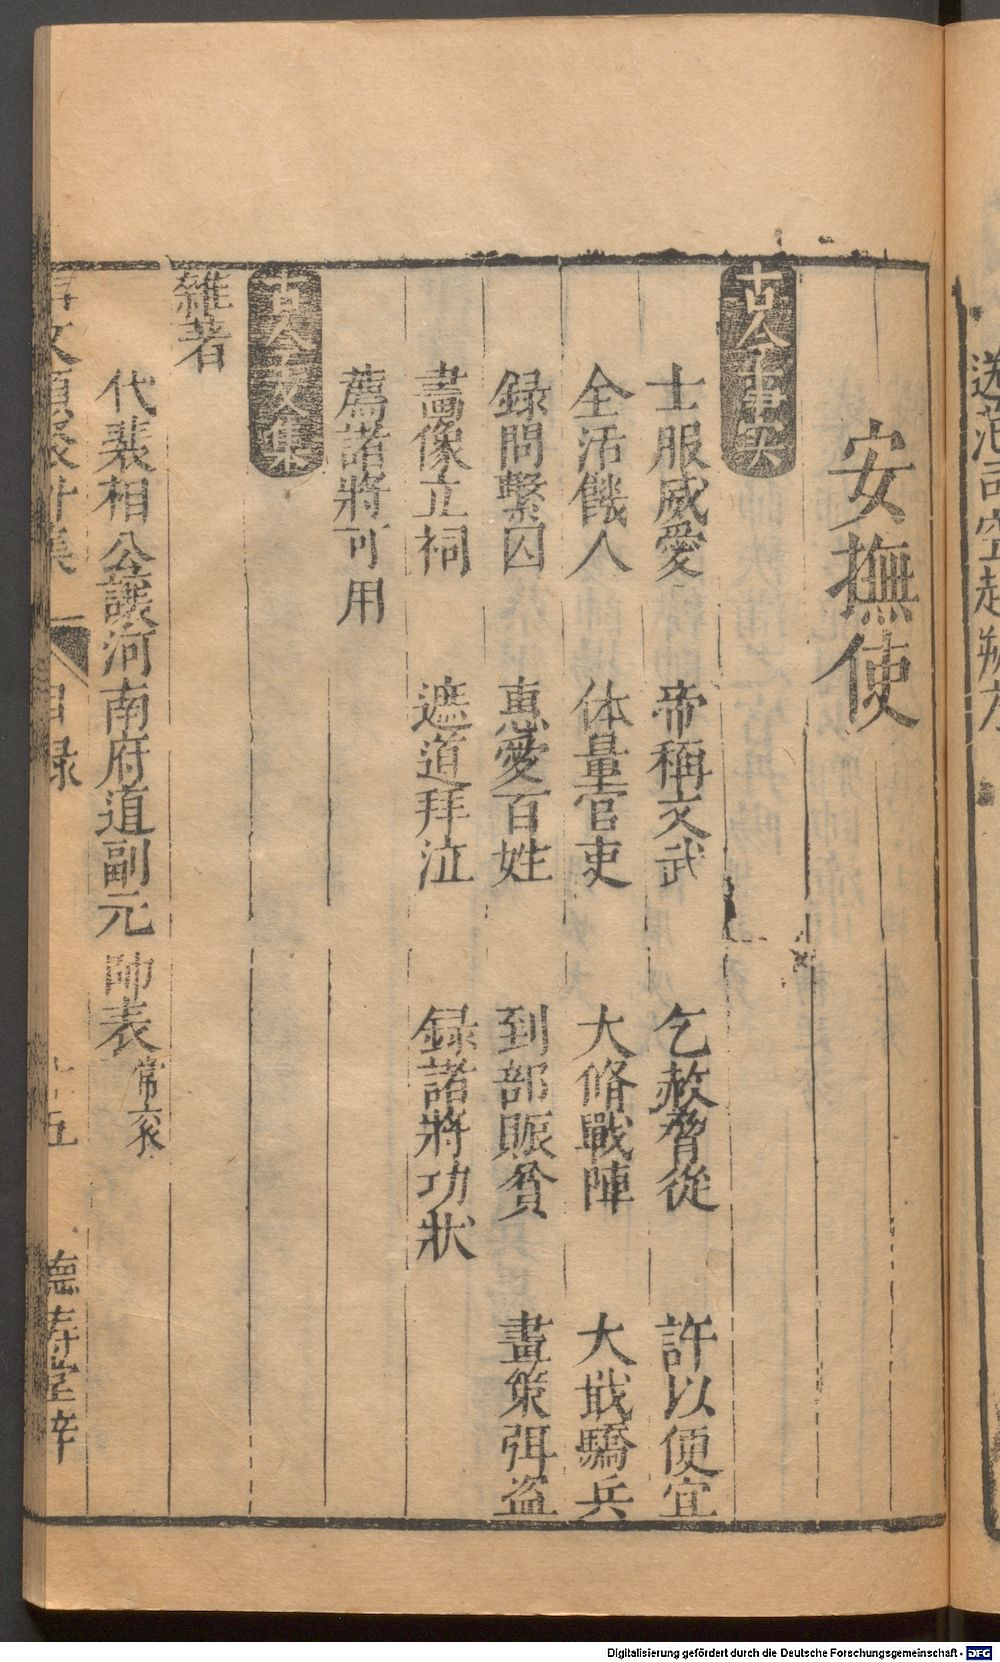 安撫使
古今事实
士服威愛　帝稱文武　乞赦脅從　許以便宜
全活饑人　体量官吏　大脩戰陣　大戢驕兵
録問繫囚　惠愛百姓　到部賑貧　畫策弭盗
畵像立祠　遮道拜泣　録諸將功狀
薦諸將可用
古今文集
雜著
代裴相公讓河南府道副元帥表 常衮
事文類聚外集 目録 十五 德寿堂梓
送范司空赴朔方
Digitalisierung gefördert durch die Deutsche Forschungsgemeinschaft - DFG